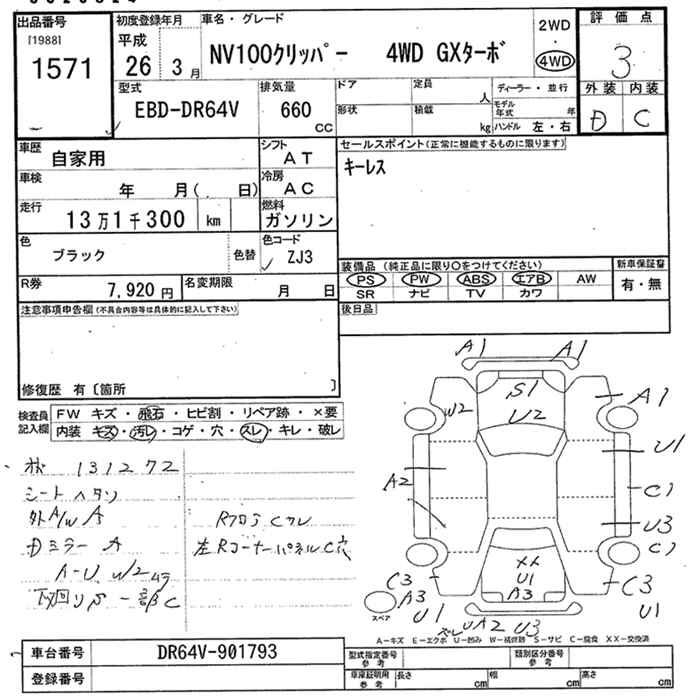 出品番号
[1988]
1571
初度登録年月
平成
26 3月
車名・グレード
NV100クリッパー 4WD GXターボ
2WD
4WD
評価点
3
外装 内装
D C
型式
EBD-DR64V
排気量
660
CC
ドア
定員
人
形状
積載
kg
ディーラー・並行
モデル年式 年
ハンドル 左・右
車歴
自家用
シフト
AT
車検
年 月( 日)
冷房
AC
走行
13万1千300 km
燃料
ガソリン
色
ブラック
色替
色コード
ZJ3
R券
7,920円
名変期限
月 日
セールスポイント(正常に機能するものに限ります)
キーレス
装備品 (純正品に限り○をつけてください)
PS PW ABS エアB AW
SR ナビ TV カワ
新車保証書
有・無
後日品
注意事項申告欄(不具合内容等は具体的に記入して下さい)
修復歴 有〔箇所 〕
検査員記入欄
FW キズ・飛石・ヒビ割・リペア跡・×要
内装 キズ・汚レ・コゲ・穴・スレ・キレ・破レ
131272
シートヘタリ
外A/W A
Dミラー A
A-U W2
下回りS 一部C
RフロアCクレ
左Rコーナーパネル C穴
A1 A1
S1
U2
W2
A1
U1
A2
C1
U3
C1
C3
XX
U1
A3
C3
A3
U1
U1
スペア
U A2 U3
A-キズ E-エクボ U-凹み W-補修跡 S-サビ C-腐食 XX-交換済
車台番号
DR64V-901793
登録番号
型式指定番号
参考
類別区分番号
参考
車庫証明用
参考
長さ cm
幅 cm
高さ cm